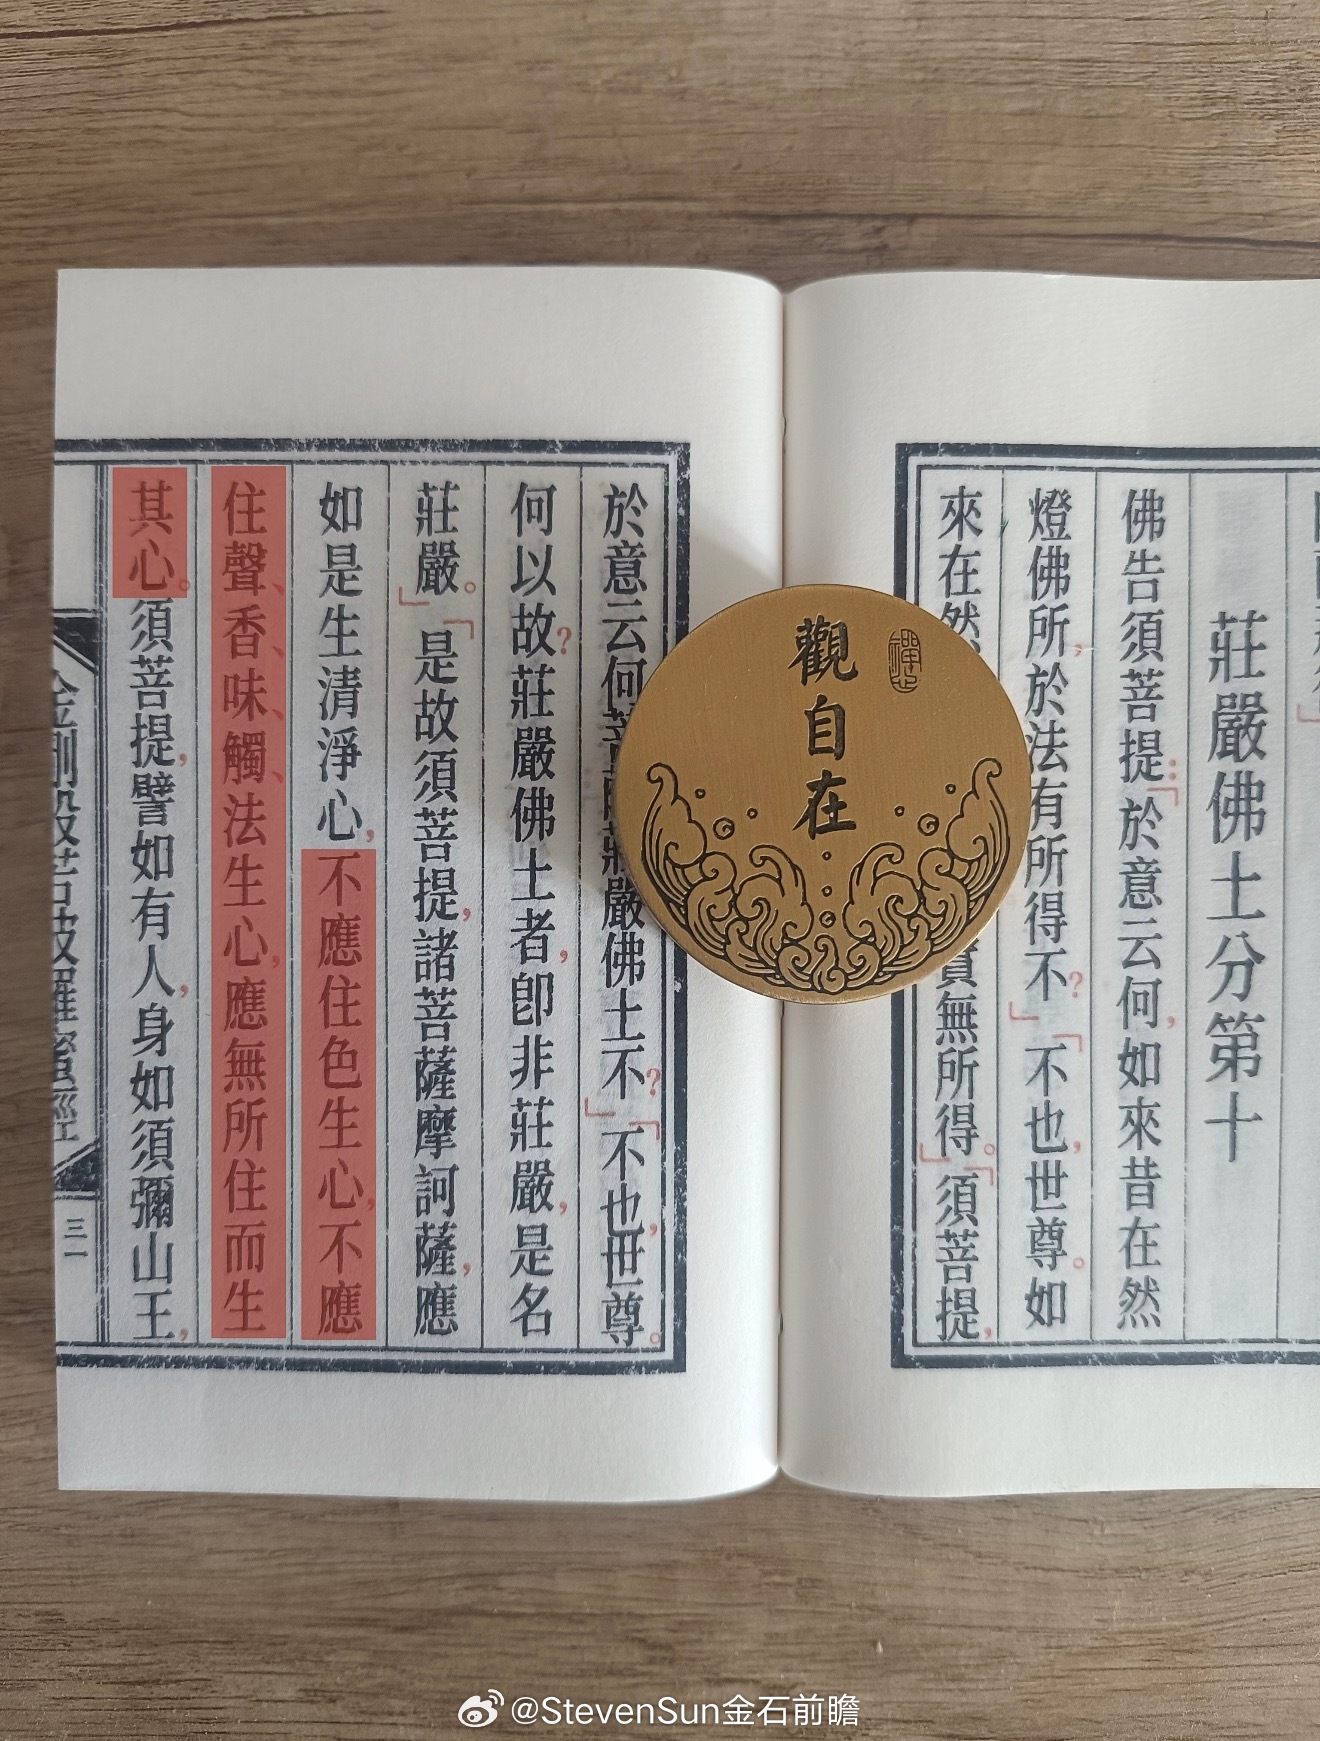 莊嚴佛土分第十
佛告須菩提：「於意云何，如來昔在然
燈佛所，於法有所得不？」「不也，世尊。如
來在然
無所得。」「須菩提，
於意云何
莊嚴佛土不？」「不也，世尊。
何以故？莊嚴佛土者，卽非莊嚴，是名
莊嚴。」「是故須菩提，諸菩薩摩訶薩，應
如是生清淨心，不應住色生心，不應
住聲、香、味、觸、法生心，應無所住而生
其心。須菩提，譬如有人，身如須彌山王，
金剛般若波羅蜜經
三一
觀自在
@StevenSun金石前瞻